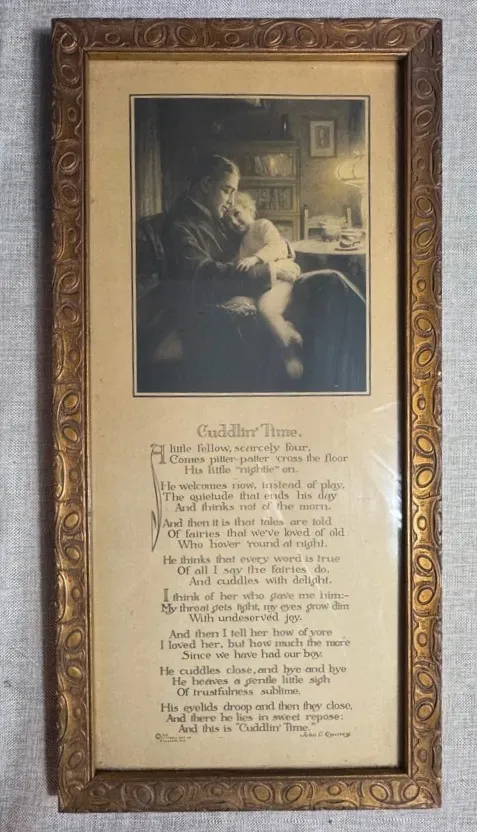 Cuddlin' Time.
A little fellow, scarcely four,
Comes pitter-patter 'cross the floor
His little "nightie" on.
He welcomes now, instead of play,
The quietude that ends his day
And thinks not of the morn.
And then it is that tales are told
Of fairies that we've loved of old
Who hover 'round at night.
He thinks that every word is true
Of all I say the fairies do,
And cuddles with delight.
I think of her who gave me him:-
My throat gets tight, my eyes grow dim
With undeserved joy.
And then I tell her how of yore
I loved her, but how much the more
Since we have had our boy.
He cuddles close, and bye and bye
He heaves a gentle little sigh
Of trustfulness sublime.
His eyelids droop and then they close,
And there he lies in sweet repose:
And this is "Cuddlin' Time."
©
John